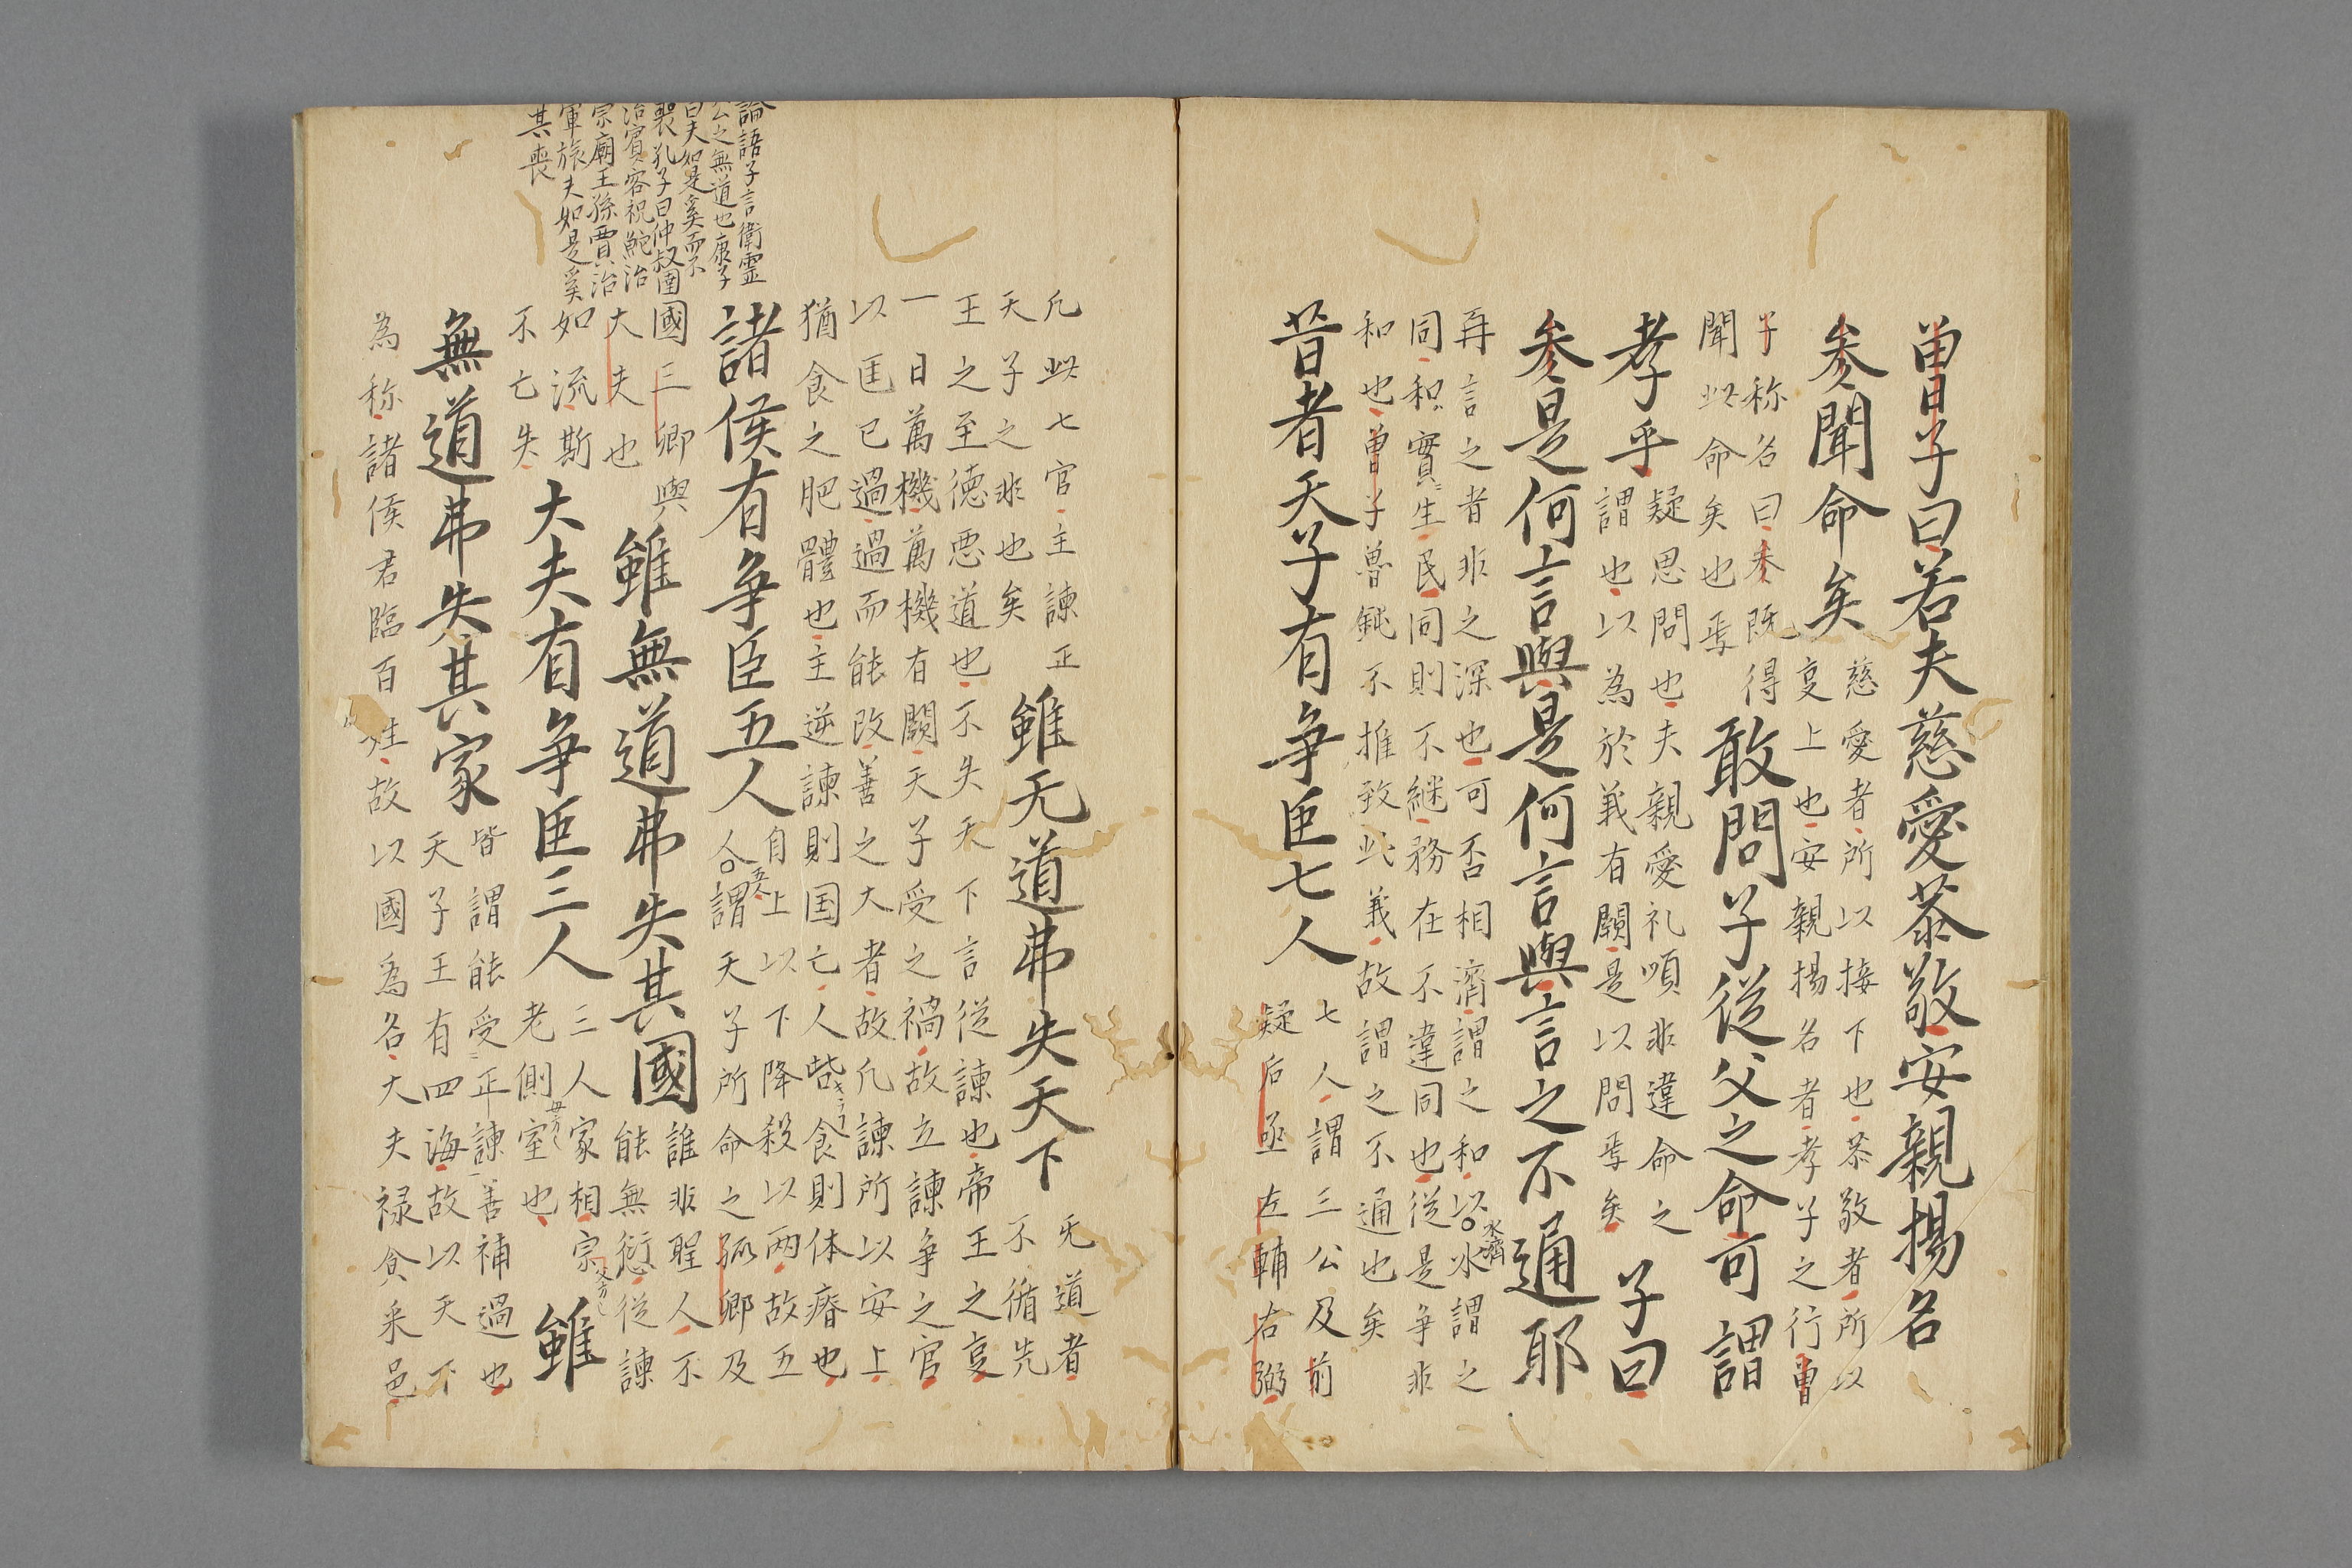 曽子曰若夫慈愛㳟敬安親揚名
參聞命矣
慈愛者所以接下也恭敬者所以
㕝上也安親揚名者孝子之行曽
子称名曰参既得
聞此命矣也焉
敢問子從父之命可謂
孝乎
疑思問也夫親愛礼順非違命之
謂也以為於義有闕是以問焉矣
子曰
参是何言與是何言與言之不通耶
再言之者非之深也可否相濟謂之和以水謂之
水濟
同和實生民同則不継務在不違同也從是争非
和也曽子魯鈍不推致此義故謂之不通也矣
昔者天子有争臣七人
七人謂三公及前
疑后丞左輔右弼
凡此七官主諫正
天子之非也矣
雖无道弗失天下
无道者
不循先
王之至德悪道也不失天下言從諫也帝王之㕝
一日萬機萬機有闕天子受之禍故立諫争之官
以匡已過過而能改善之大者故凡諫所以安上
猶食之肥體也主逆諫則国亡人呰食則体瘠也
諸侯有争臣五人
自上以下降殺以两故五
人謂天子所命之孤卿及
國三卿與
大夫也
雖無道弗失其國
誰非聖人不
能無愆從諫
如流斯
不亡失
大夫有争臣三人
三人家相宗
老側室也
雖
無道弗失其家
皆謂能受正諫善補過也
天子王有四海故以天下
為称諸侯君臨百姓故以國為名大夫禄食采邑
論語子言衛霊
公之無道也康子
曰夫如是奚而不
喪孔子曰仲叔圉
治賓客祝鮀治
宗廟王孫賈治
軍旅夫如是奚
其喪